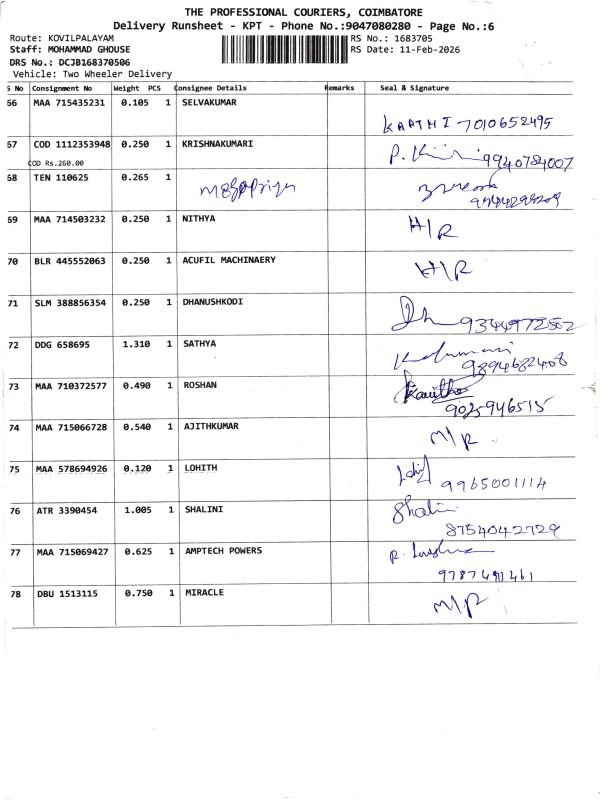 THE PROFESSIONAL COURIERS, COIMBATORE
Delivery Runsheet - KPT - Phone No.:9047080280 - Page No.:6
Route: KOVILPALAYAM RS No.: 1683705
Staff: MOHAMMAD GHOUSE RS Date: 11-Feb-2026
DRS No.: DCJB168370506
Vehicle: Two Wheeler Delivery
S No Consignment No Weight PCS Consignee Details Remarks Seal & Signature
66 MAA 715435231 0.105 1 SELVAKUMAR
KARTHI 7010652495
67 COD 1112353948 0.250 1 KRISHNAKUMARI
COD Rs.260.00
9940784007
68 TEN 110625 0.265 1
69 MAA 714503232 0.250 1 NITHYA H/R
70 BLR 445552063 0.250 1 ACUFIL MACHINAERY H/R
71 SLM 388856354 0.250 1 DHANUSHKODI
9344972562
72 DDG 658695 1.310 1 SATHYA
9894682408
73 MAA 710372577 0.490 1 ROSHAN Kavitha
9025946515
74 MAA 715066728 0.540 1 AJITHKUMAR M/R
75 MAA 578694926 0.120 1 LOHITH
9965001114
76 ATR 3390454 1.005 1 SHALINI Shalini
8754042729
77 MAA 715069427 0.625 1 AMPTECH POWERS
9787691461
78 DBU 1513115 0.750 1 MIRACLE M/R